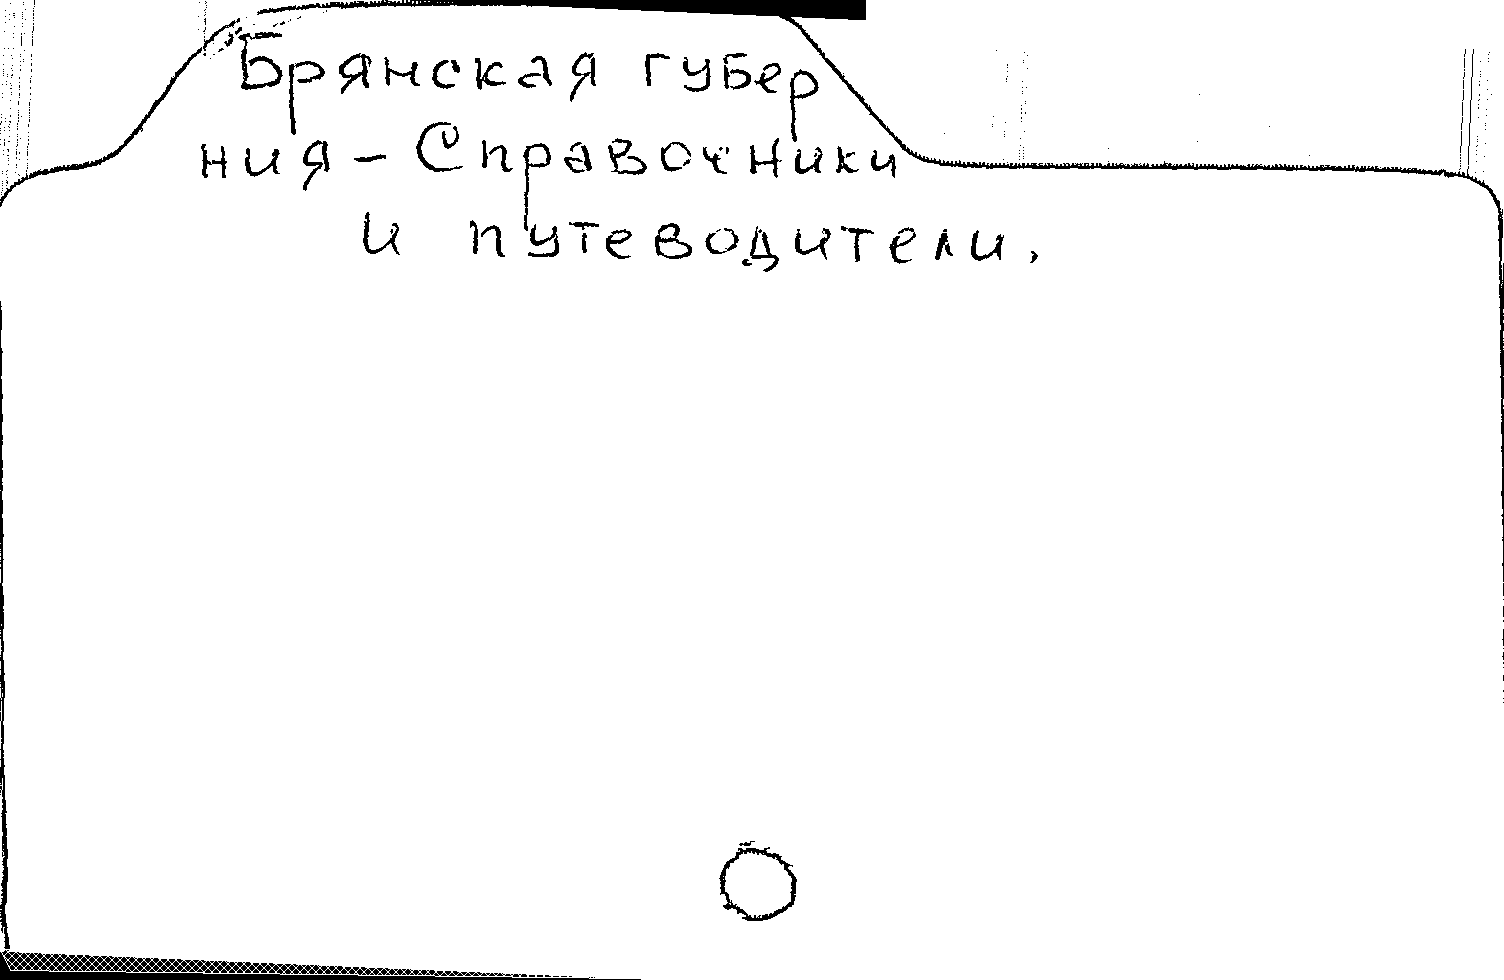 Брянская губер
ния - Справочники
и путеводители.